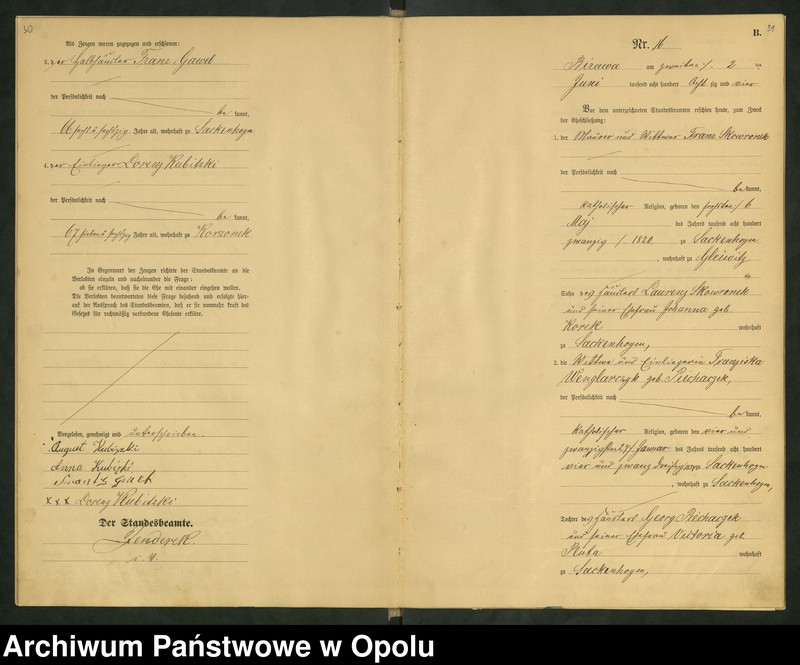 30
Als Zeugen waren zugezogen und erschienen:
3. der Halbhäusler Franz Gawel
der Persönlichkeit nach
be kannt,
66 sechs u sechszig Jahre alt, wohnhaft zu Sackenhoym
4. der Einlieger Lorenz Kubitzki
der Persönlichkeit nach
be kannt,
67 sieben u sechszig Jahre alt, wohnhaft zu Korzonek
In Gegenwart der Zeugen richtete der Standesbeamte an die
Verlobten einzeln und nacheinander die Frage:
ob sie erklären, daß sie die Ehe mit einander eingehen wollen.
Die Verlobten beantworteten diese Frage bejahend und erfolgte hier-
auf der Ausspruch des Standesbeamten, daß er sie nunmehr kraft des
Gesetzes für rechtmäßig verbundene Eheleute erkläre.
Vorgelesen, genehmigt und unterschrieben.
August Kubizki
Anna Kubizki
Frantz
x x x Lorenz Kubitzki
Der Standesbeamte.
Zenderek.
i. V.
31
B.
Nr. 16
Birawa am zweiten /. 2 ten
Juni tausend acht hundert Acht zig und vier
Vor dem unterzeichneten Standesbeamten erschien heute, zum Zweck
der Eheschließung:
1. der Maurer und Wittwer Franz Skowronek
der Persönlichkeit nach
be kannt,
katholischer Religion, geboren den sechsten / 6
Maj des Jahres tausend acht hundert
zwanzig / 1820 zu Sackenhoym
, wohnhaft zu Gleiwitz
Sohn des Häuslers Laurenz Skowronek
und seiner Ehefrau Johanna geb.
Korek wohnhaft
zu Sackenhoym,
2. die Wittwe und Einliegerin Franziska
Wenglarczyk geb. Piechaczek,
der Persönlichkeit nach
be kannt,
katholischer Religion, geboren den vier und
zwanzigsten 24/ Januar des Jahres tausend acht hundert
vier und dreißig zu Sackenhoym
, wohnhaft zu Sackenhoym,
Tochter des Häuslers Georg Piechaczek
und seiner Ehefrau Victoria geb.
Ruta wohnhaft
zu Sackenhoym,
Archiwum Państwowe w Opolu